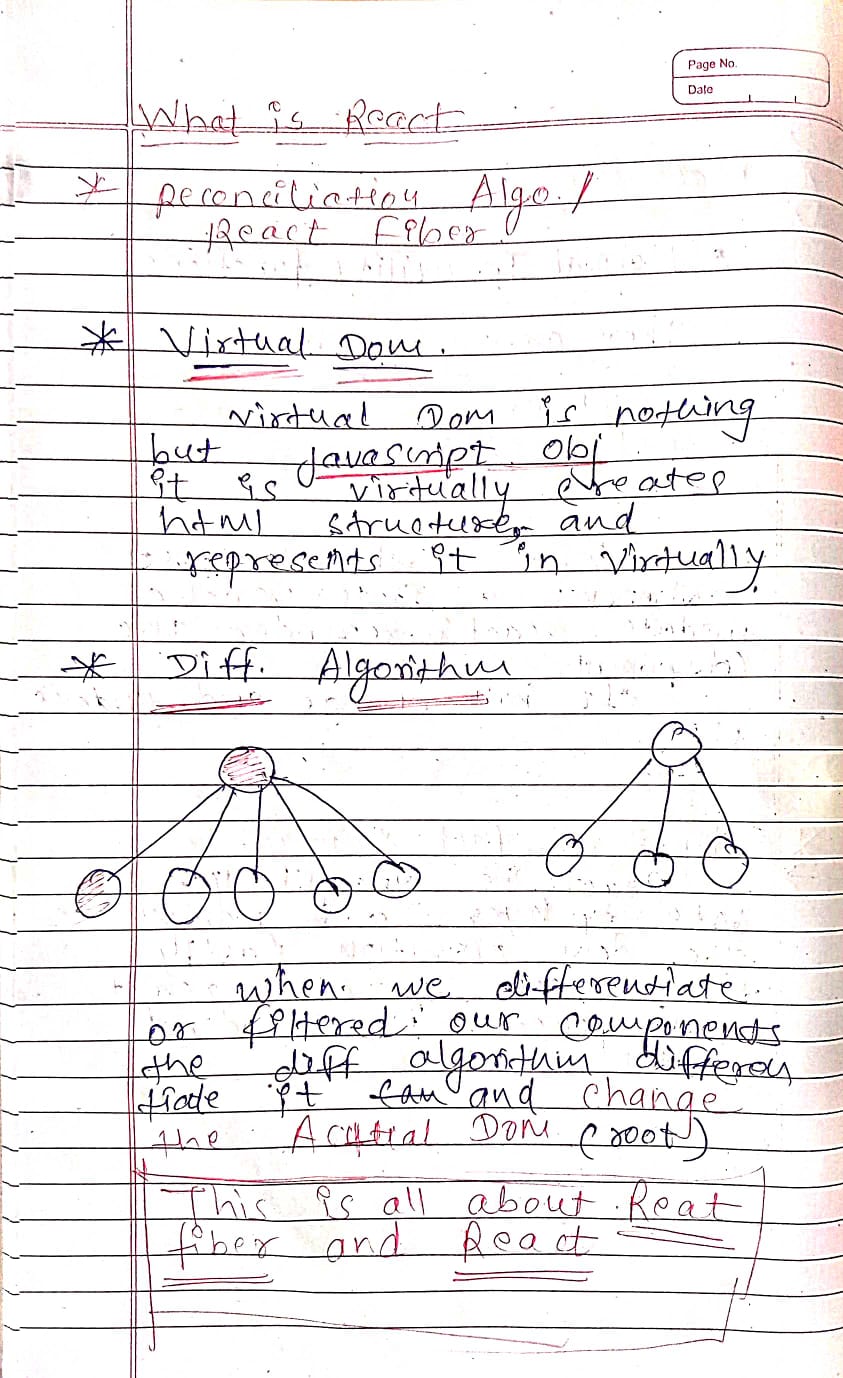 Page No.
Date
What is React
* Reconciliation Algo. /
React Fiber
* Virtual Dom.
Virtual Dom is nothing
but Javascript obj
it is virtually creates
html structure, and
represents it in virtually
* Diff. Algorithm
when we differentiate
or filtered our components
the diff algorithm differen
tiate it can and change
the Acutial Dom (root)
This is all about Reat
fiber and React